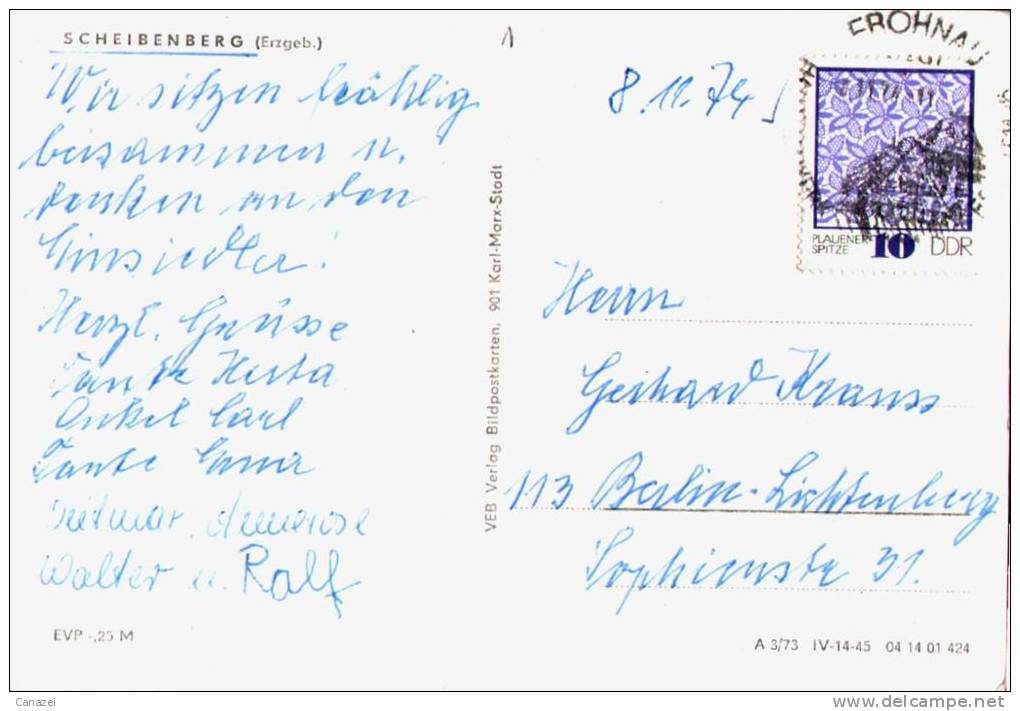 SCHEIBENBERG (Erzgeb.)
Wir sitzen fröhlig
beisammen u.
denken an den
Einsiedler!
Herzl. Grüsse
Tante Herta
Onkel Carl
Tante
Dietmar, Annerose
Walter u. Ralf
EVP -,25 M
VEB Verlag Bildpostkarten, 901 Karl-Marx-Stadt
8.11.74
FROHNAU
PLAUENER
SPITZE 10 DDR
Herrn
Gerhard Krauss
113 Berlin-Lichtenberg
Sophienstr 31.
A 3/73 IV-14-45 04 14 01 424
Canazei
www.delcampe.net